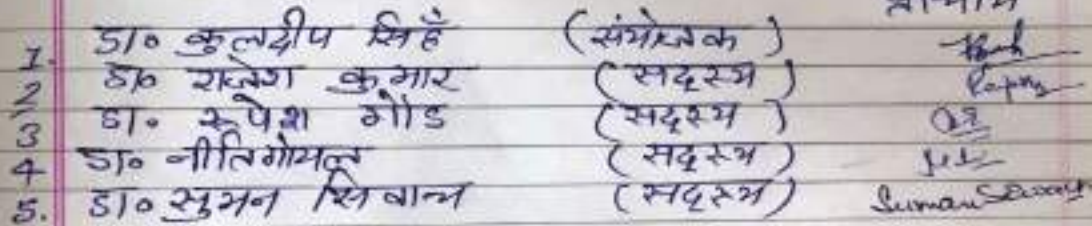 1. डा० कुलदीप सिहँ (संयोजक)
2 डा० राजेश कुमार (सदस्य)
3 डा० रूपेश गौड (सदस्य)
4 डा० नीति गोयल (सदस्य)
5. डा० सुमन सिवाच (सदस्य) Suman